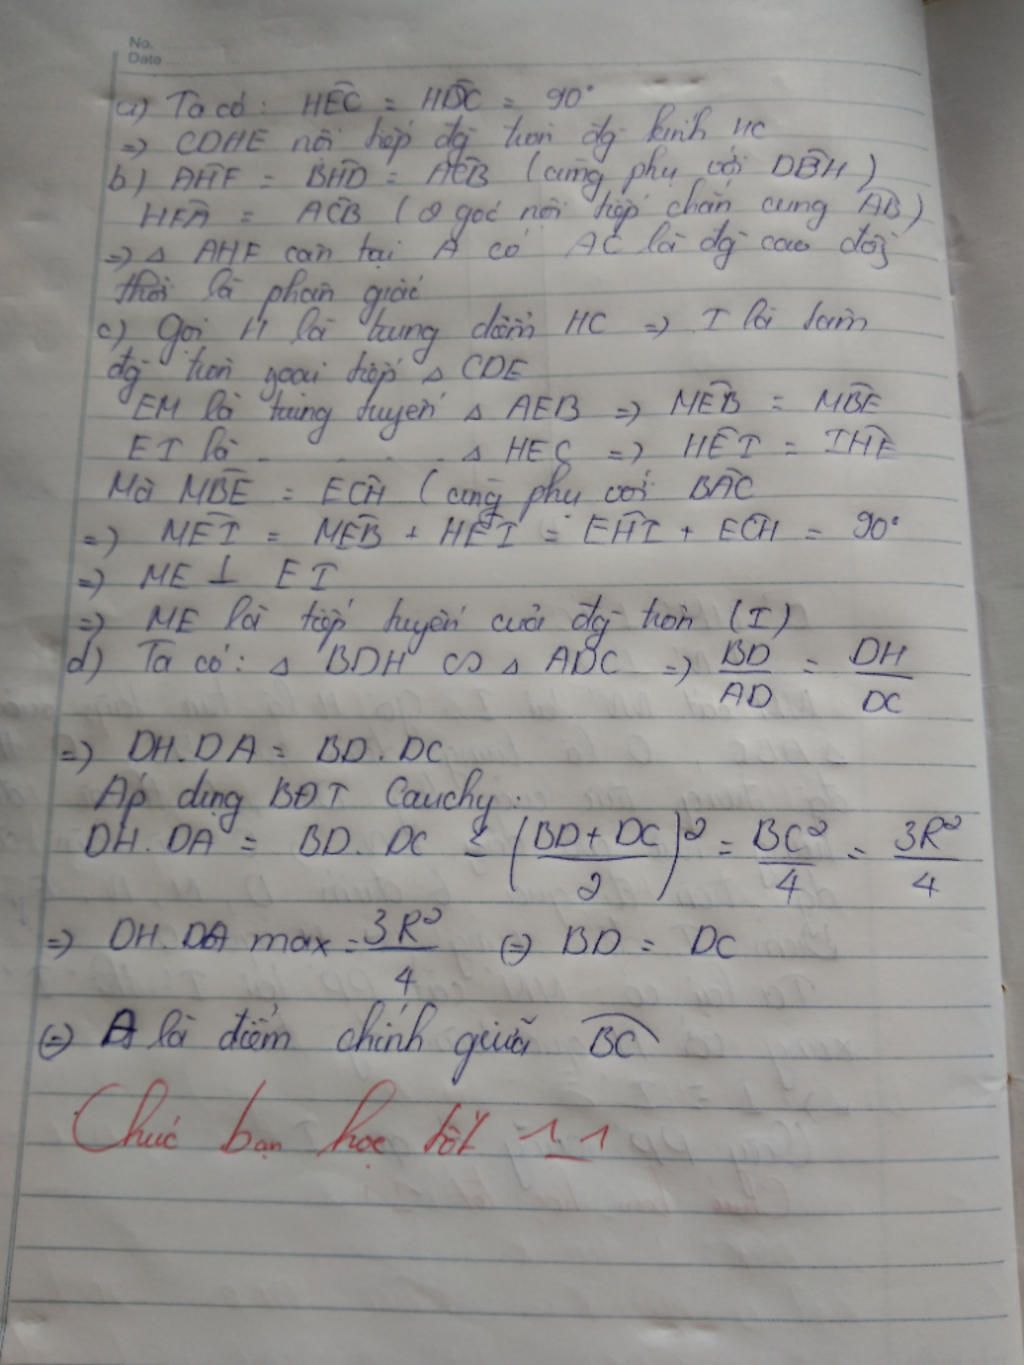 No.
Date
a) Ta có: HEC = HDC = 90°
=> CDHE nội tiếp đg tròn đg kính HC
b) AHF = BHD = ACB (cùng phụ với DBH)
HFA = ACB (2 góc nội tiếp chắn cung AB)
=> △ AHF cân tại A có AC là đg cao đồg
thời là phân giác
c) Gọi H là trung điểm HC => I là tâm
đg tròn ngoại tiếp △ CDE
EM là trung tuyến △ AEB => MEB = MBE
EI là . . . . . △ HEC => HEI = IHE
Mà MBE = ECH (cùng phụ với BAC
=> MEI = MEB + HEI = EHI + ECH = 90°
=> ME ⊥ EI
=> ME là tiếp tuyến của đg tròn (I)
d) Ta có: △ BDH ∽ △ ADC => BD/AD = DH/DC
=> DH.DA = BD.DC
Áp dụng BĐT Cauchy:
DH.DA = BD.DC ≤ ((BD+DC)/2)² = BC²/4 = 3R²/4
=> DH.DA max = 3R²/4 (=) BD = DC
(=) A là điểm chính giữa BC
Chúc bạn học tốt ^_^